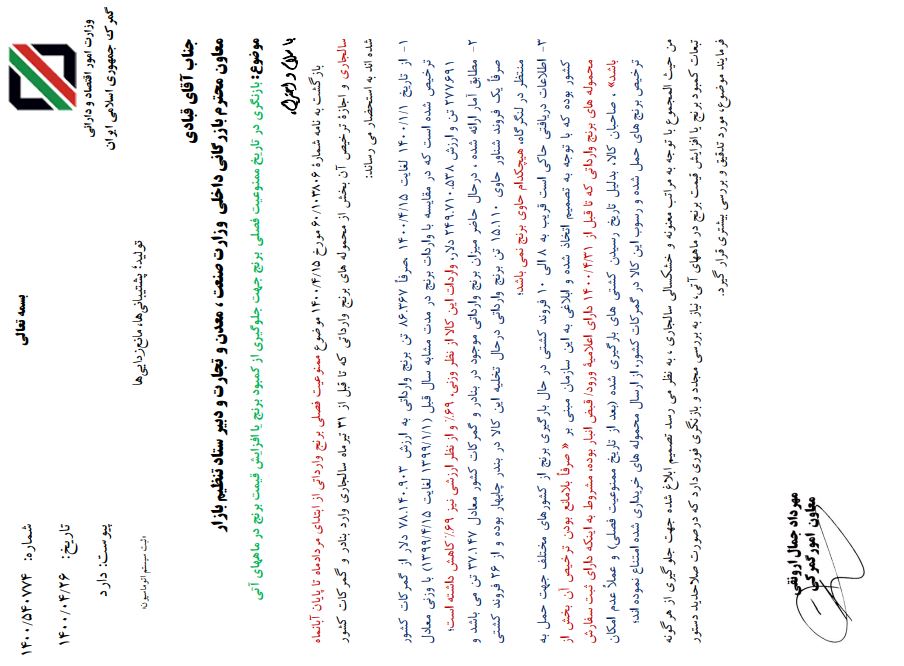 بسمه تعالی
وزارت امور اقتصاد و دارائی
گمرک جمهوری اسلامی ایران
تولید؛ پشتیبانی‌ها، مانع‌زدایی‌ها
شماره: ۱۴۰۰/۵۴۰۷۷۴
تاریخ: ۱۴۰۰/۰۴/۲۶
پیوست: دارد
ثبت سیستم اتوماسیون
جناب آقای قبادی
معاون محترم بازرگانی داخلی وزارت صنعت ، معدن و تجارت و دبیر ستاد تنظیم بازار
موضوع: بازنگری در تاریخ ممنوعیت فصلی برنج جهت جلوگیری از کمبود برنج یا افزایش قیمت برنج در ماههای آتی
با سلام و احترام،
بازگشت به نامه شماره ۶۰/۱۰۳۸۰۶ مورخ ۱۴۰۰/۴/۱۵ موضوع ممنوعیت فصلی برنج وارداتی از ابتدای مردادماه تا پایان آبانماه
سالجاری و اجازۀ ترخیص آن بخش از محموله های برنج وارداتی که تا قبل از ۳۱ تیرماه سالجاری وارد بنادر و گمرکات کشور
شده اند به استحضار می رساند:
۱- از تاریخ ۱۴۰۰/۱/۱ لغایت ۱۴۰۰/۴/۱۵ ،صرفاً ۸۶.۳۶۷ تن برنج وارداتی به ارزش ۷۸.۱۴۰.۹۰۳ دلار از گمرکات کشور
ترخیص شده است که در مقایسه با واردات برنج در مدت مشابه سال قبل (۱۳۹۹/۱/۱ لغایت ۱۳۹۹/۴/۱۵) با وزنی معادل
۲۷۷.۶۹۱ تن و ارزش ۲۴۹.۷۱۰.۵۳۸ دلار، واردات این کالا از نظر وزنی، ۶۹٪ و از نظر ارزشی نیز ۶۹٪ کاهش داشته است؛
۲- مطابق آمار ارائه شده ، درحال حاضر میزان برنج وارداتی موجود در بنادر و گمرکات کشور معادل ۳۷.۱۴۷ تن می باشد و
صرفاً یک فروند شناور حاوی ۱۵.۱۱۰ تن برنج وارداتی درحال تخلیه این کالا در بندر چابهار بوده و از ۲۶ فروند کشتی
منتظر در لنگرگاه، هیچکدام حاوی برنج نمی باشد؛
۳- اطلاعات دریافتی حاکی است قریب به ۸ الی ۱۰ فروند کشتی در حال بارگیری برنج از کشورهای مختلف جهت حمل به
کشور بوده که با توجه به تصمیم اتخاذ شده و ابلاغی به این سازمان مبنی بر « صرفاً بلامانع بودن ترخیص آن بخش از
محموله های برنج وارداتی که تا قبل از ۱۴۰۰/۴/۳۱ دارای اعلامیۀ ورود/ قبض انبار بوده، مشروط به اینکه دارای ثبت سفارش
باشند» ، صاحبان کالا، بدلیل تاریخ رسیدن کشتی های بارگیری شده (بعد از تاریخ ممنوعیت فصلی) و عملاً عدم امکان
ترخیص برنج های حمل شده و رسوب این کالا در گمرکات کشور، از ارسال محموله های خریداری شده امتناع نموده اند؛
من حیث المجموع با توجه به مراتب معنونه و خشکسالی سالجاری ، به نظر می رسد تصمیم ابلاغ شده جهت جلوگیری از هرگونه
تبعات کمبود برنج یا افزایش قیمت برنج در ماههای آتی، نیاز به بررسی مجدد و بازنگری فوری دارد که درصورت صلاحدید دستور
فرمایند موضوع، مورد تدقیق و بررسی بیشتری قرار گیرد.
مهرداد جمال ارونقی
معاون امور گمرکی